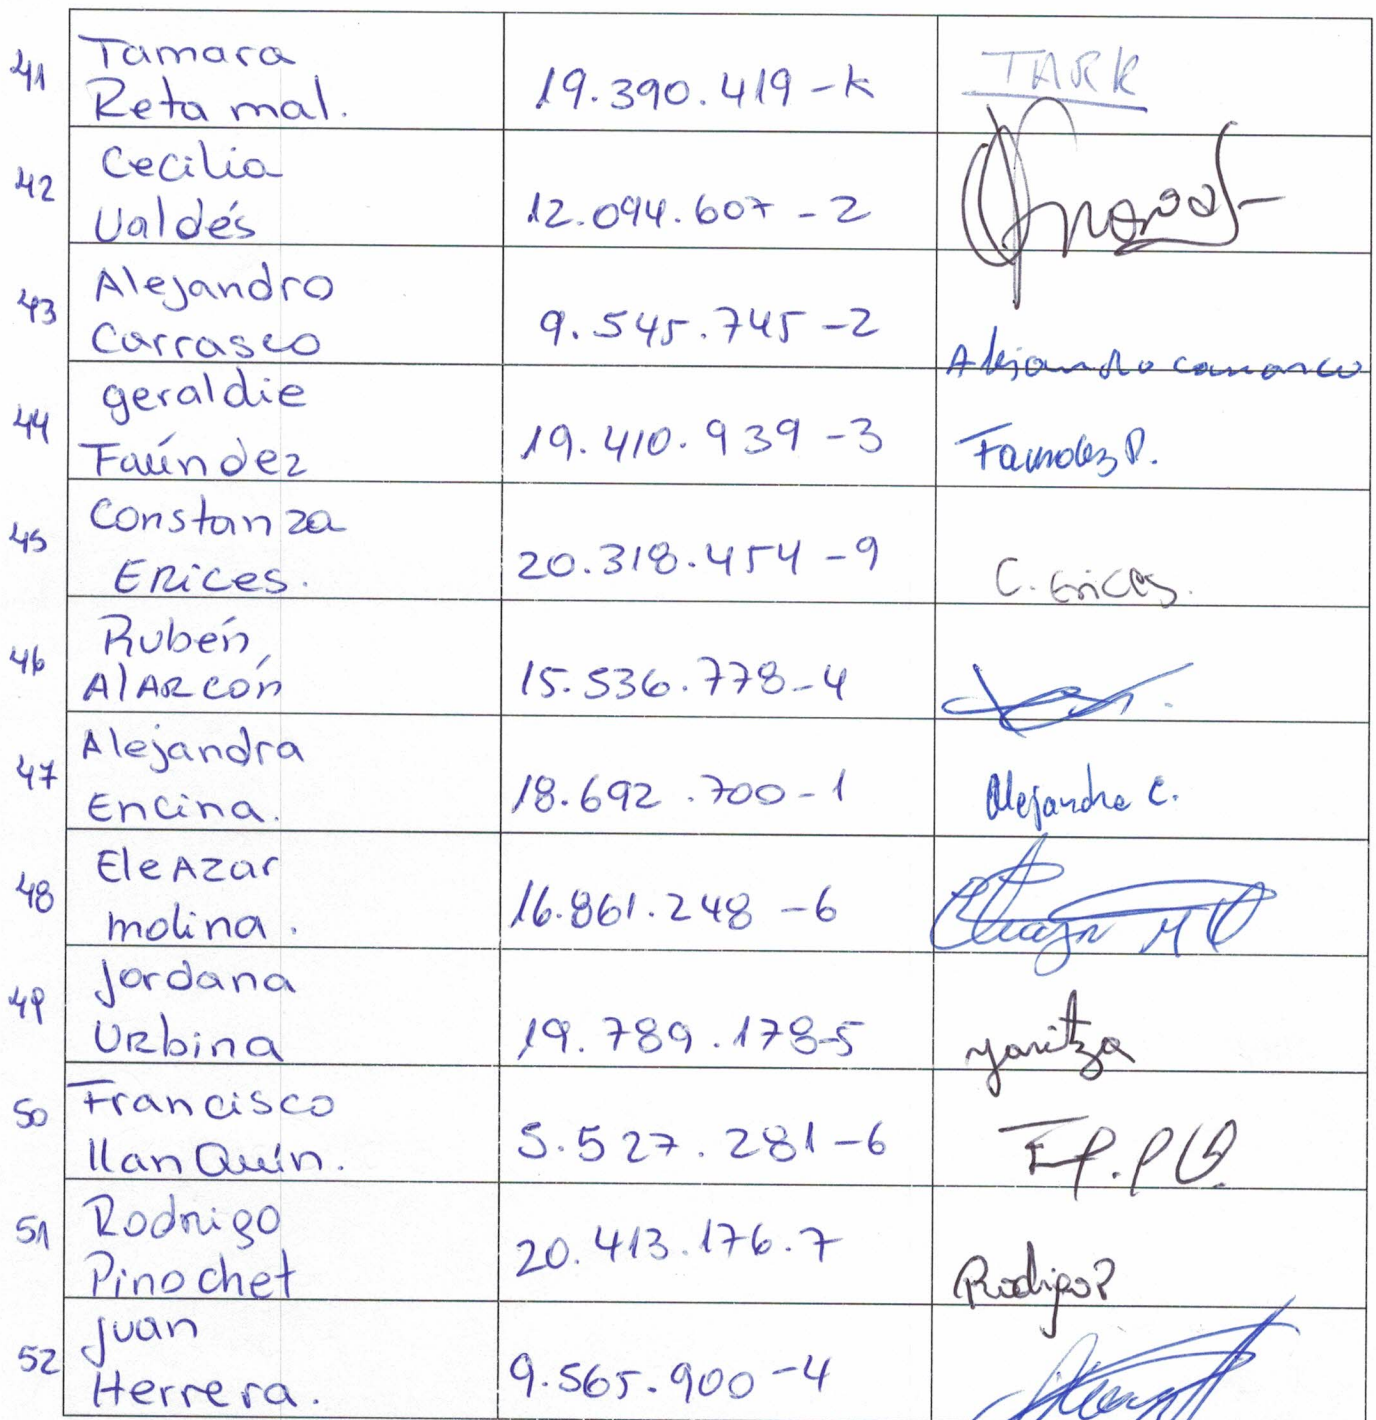 41 Tamara Retamal. 19.390.419-k TARK
42 Cecilia Valdés 12.094.607-2
43 Alejandro Carrasco 9.545.745-2 Alejandro Carrasco
44 geraldie Faúndez 19.410.939-3 Faundez P.
45 Constanza ERices. 20.318.454-9 C. Erices.
46 Rubén AlARcón 15.536.778-4
47 Alejandra Encina. 18.692.700-1 Alejandra E.
48 EleAzar molina. 16.861.248-6
49 Jordana URbina 19.789.178-5 yaritza
50 Francisco llanQuín. 5.527.281-6
51 Rodrigo Pinochet 20.413.176.7 Rodrigo P
52 Juan Herrera. 9.565.900-4